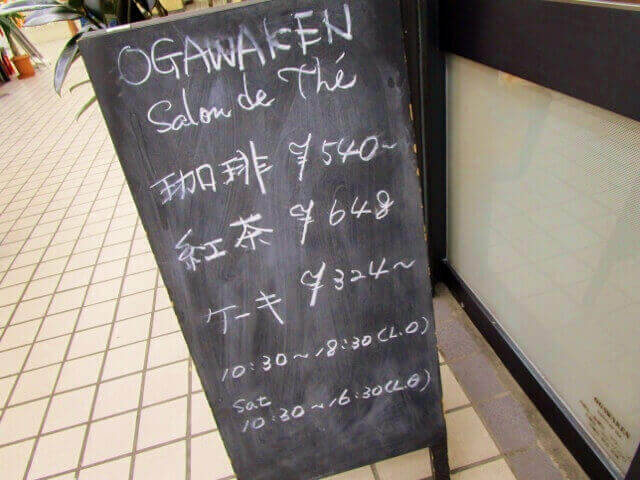 OGAWAKEN
Salon de Thé
珈琲 ¥540~
紅茶 ¥648
ケーキ ¥324~
10:30~18:30(L.O)
Sat
10:30~16:30(L.O)